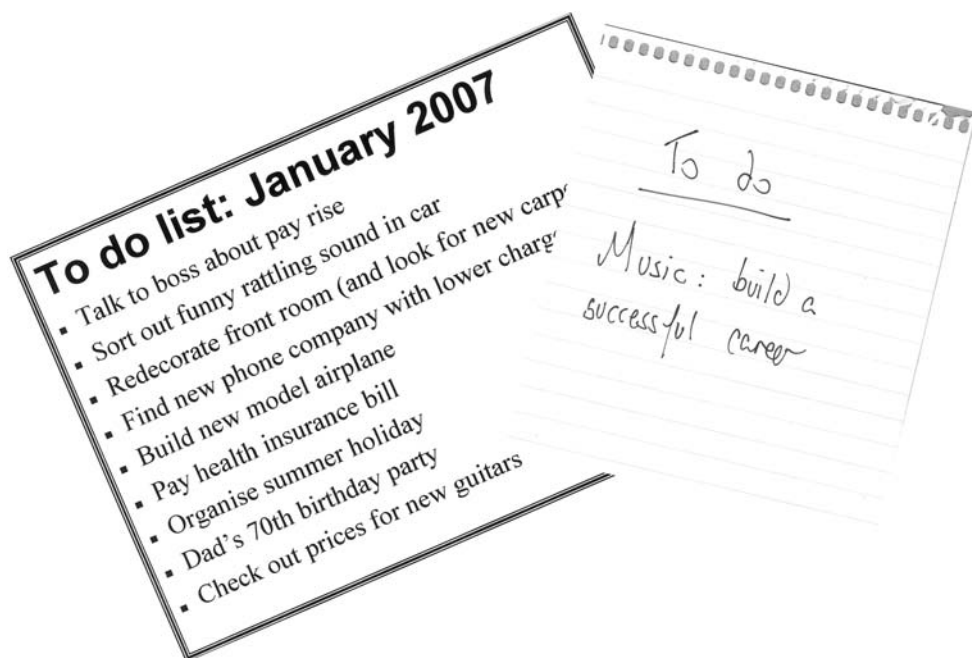 To do list: January 2007
▪ Talk to boss about pay rise
▪ Sort out funny rattling sound in car
▪ Redecorate front room (and look for new
▪ Find new phone company with lower
▪ Build new model airplane
▪ Pay health insurance bill
▪ Organise summer holiday
▪ Dad's 70th birthday party
▪ Check out prices for new guitars
To do
Music: build a
successful career